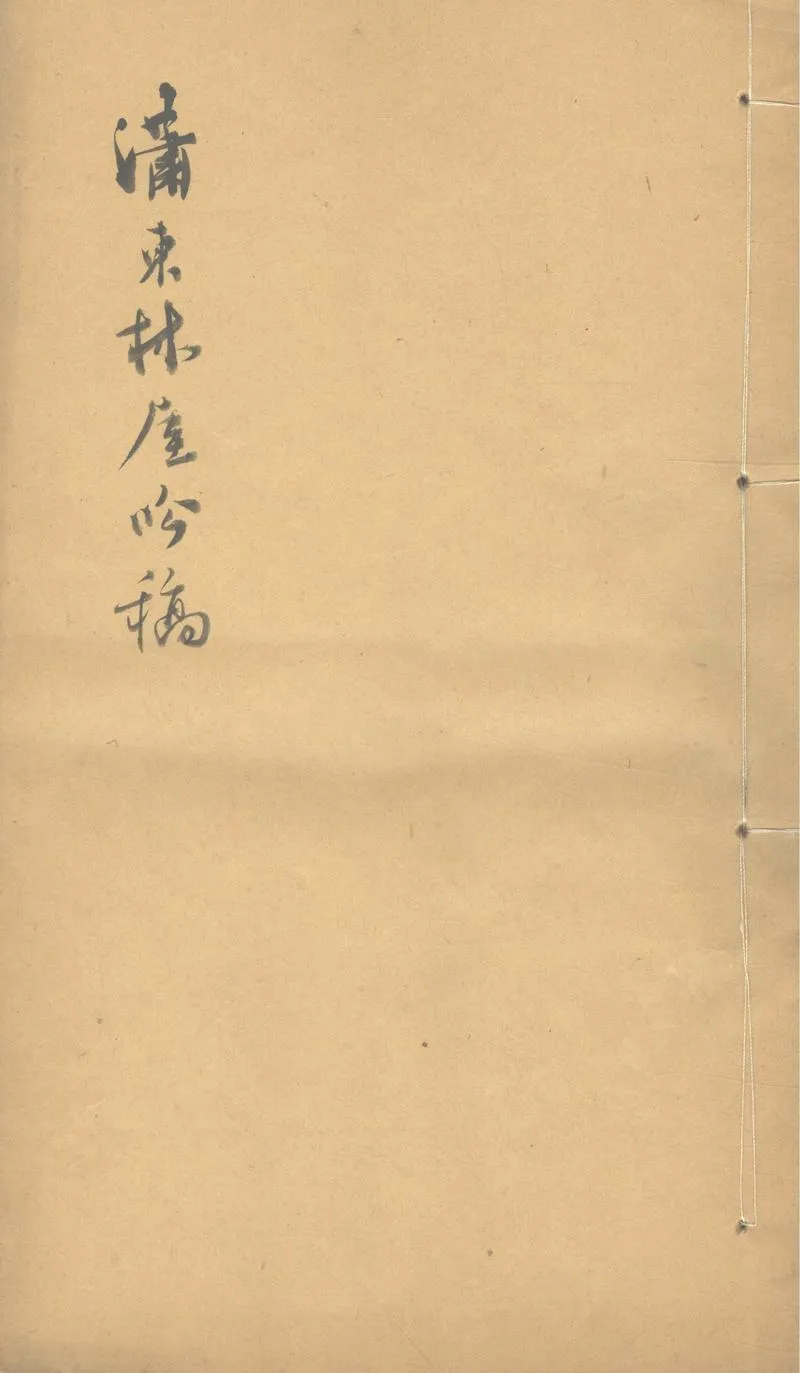 潚東林屋吟稿